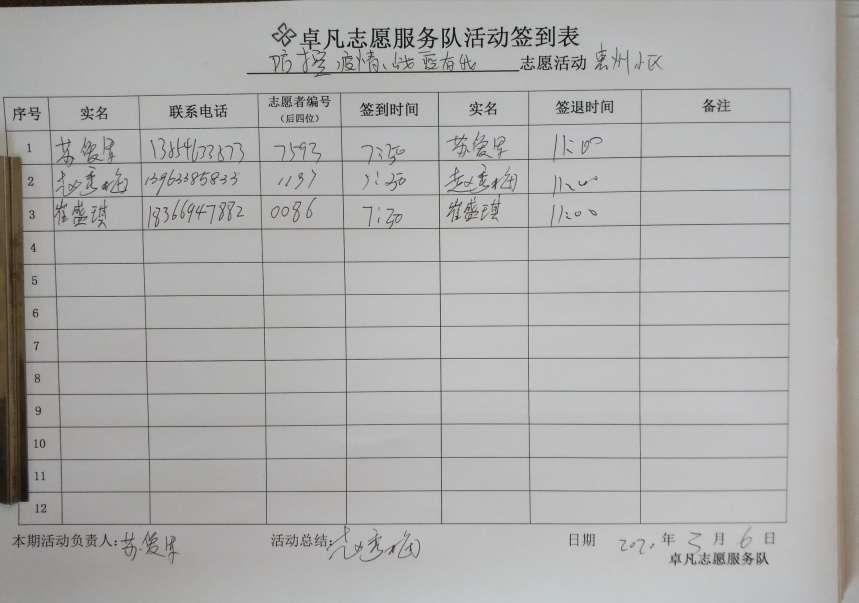 卓凡志愿服务队活动签到表
防控疫情、我有我 志愿活动 惠州小区
序号 实名 联系电话 志愿者编号（后四位） 签到时间 实名 签退时间 备注
1 苏爱军 7593 7:50 苏爱军 11:00
2 赵秀梅 13963385833 1197 7:50 赵秀梅 11:00
3 崔盛琪 18366947882 0086 7:50 崔盛琪 11:00
4
5
6
7
8
9
10
11
12
本期活动负责人:苏爱军 活动总结:赵秀梅 日期 2020年3月6日
卓凡志愿服务队